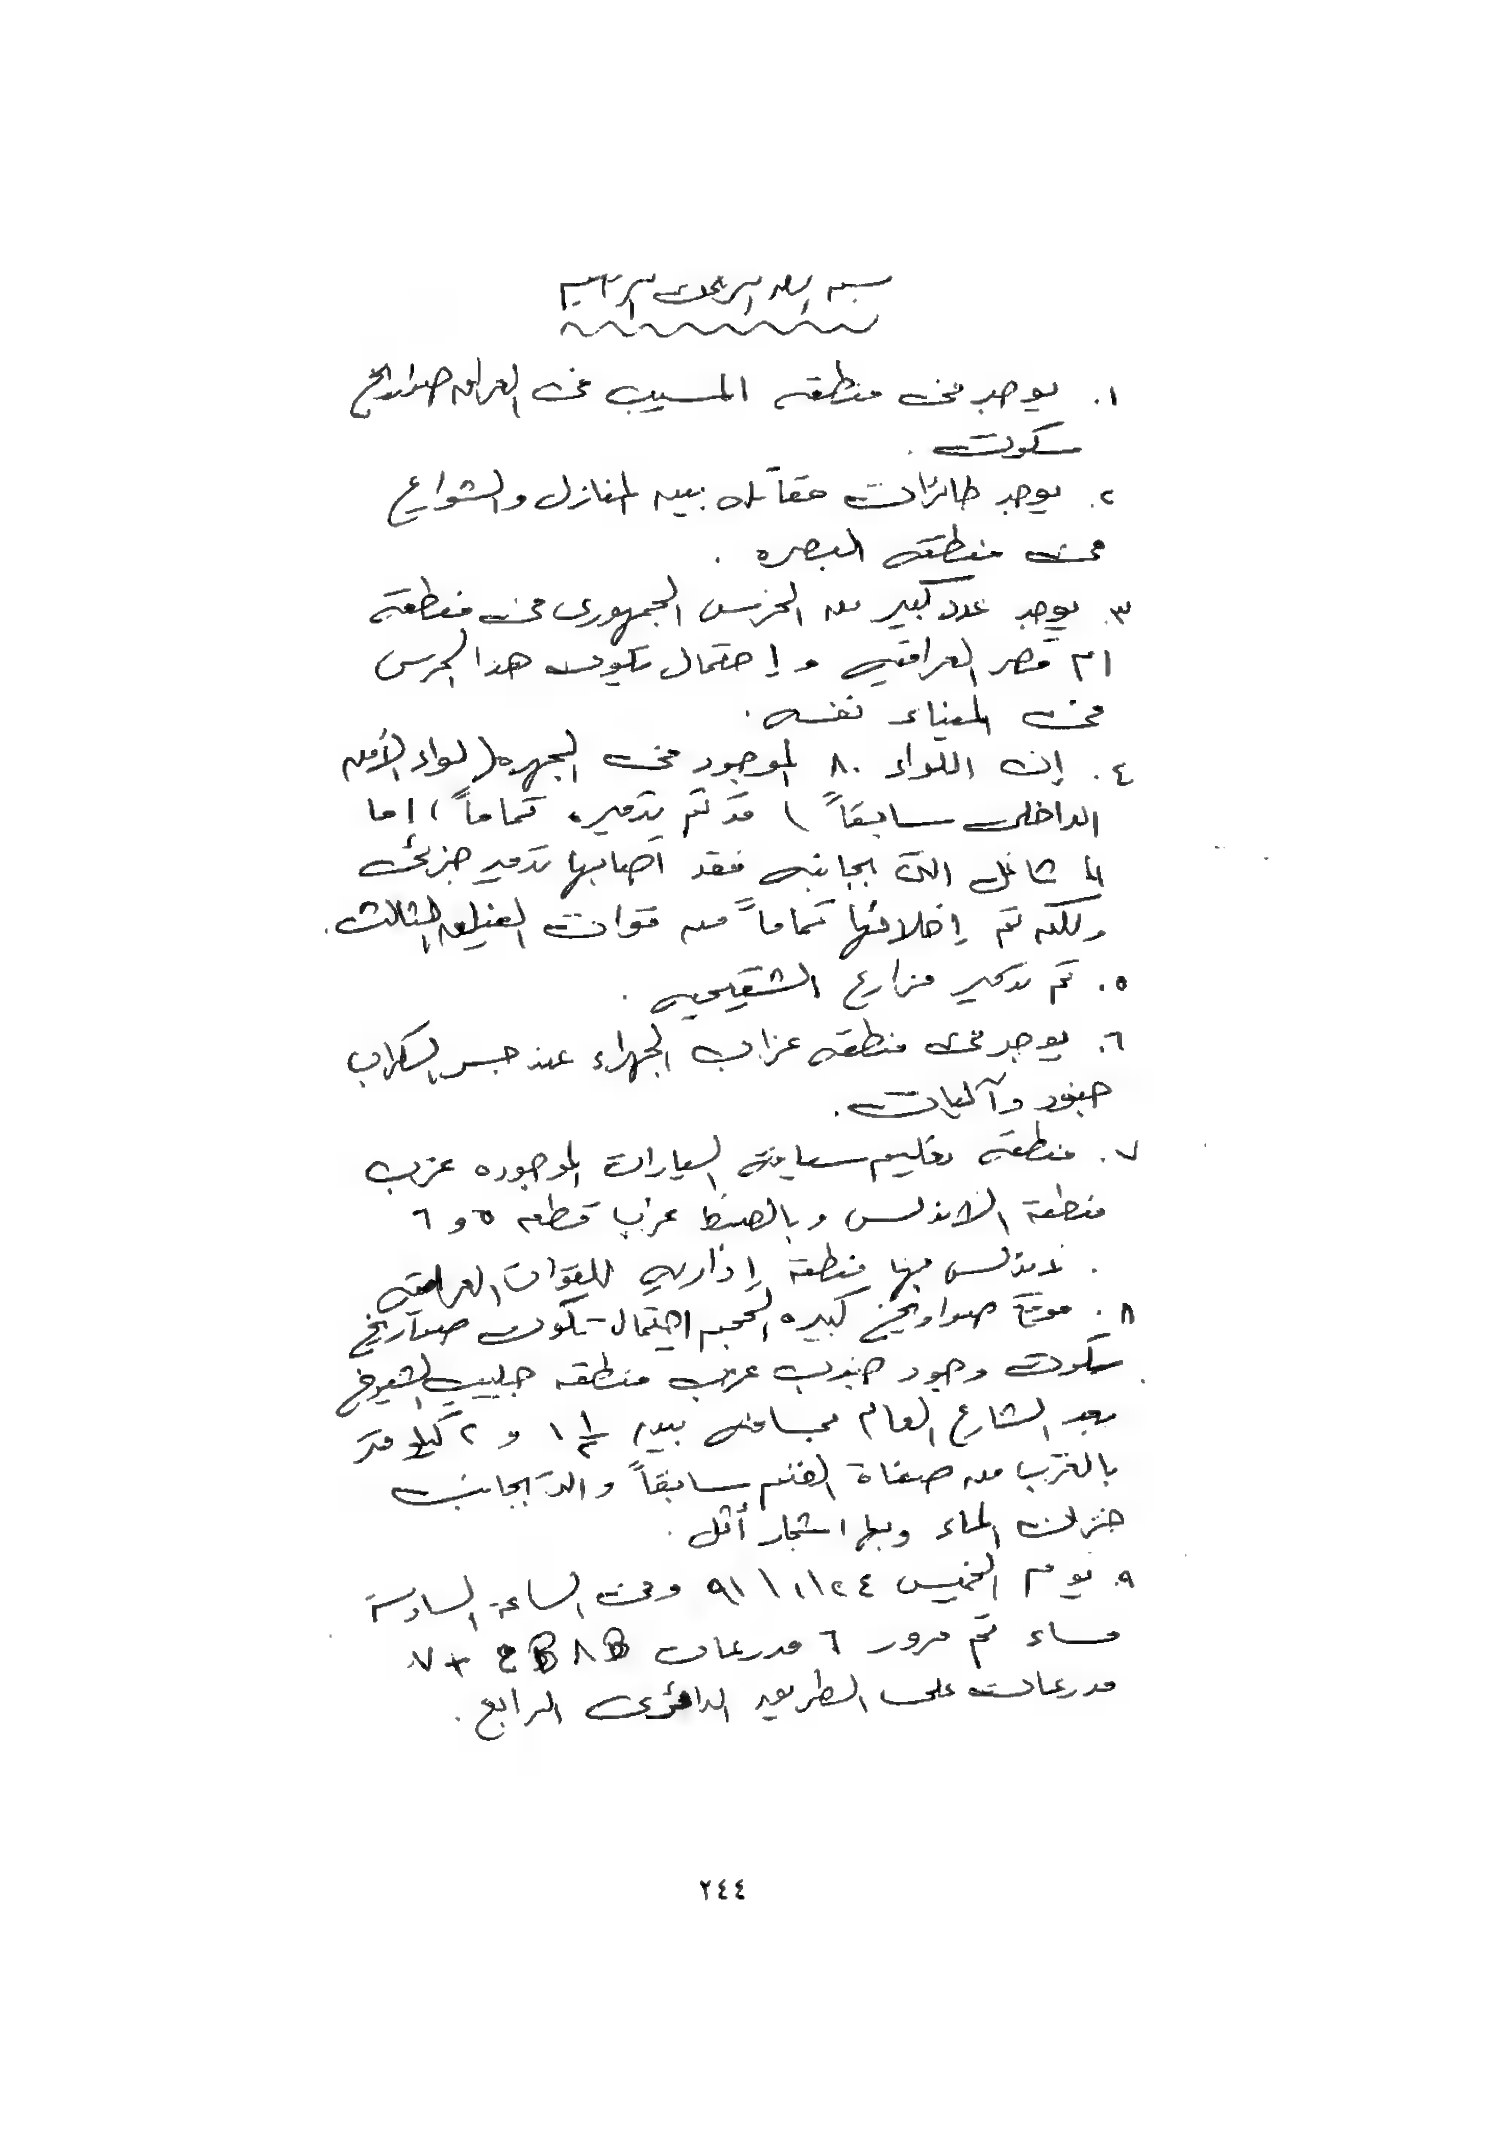 بسم الله الرحمن الرحيم
١. يوجد في منطقة المسيب في العراق صواريخ
سكوت .
٢. يوجد طائرات مقاتله بين المنازل والشوارع
في منطقة البصره .
٣. يوجد عدد كبير من الحرس الجمهوري في منطقة
ام قصر العراقيه و إحتمال يكون هذا الحرس
في الميناء نفسه .
٤. إن اللواء ٨٠ الموجود في الجهره (لواء الأمن
الداخلي سابقاً ) قد تم تدميره تماماً ، اما
المشاغل التي بجانبه فقد أصابها تدمير جزئي
ولكن تم إخلائها تماماً من قوات الفيلق الثالث .
٥. تم تدمير مزارع الشقيحيه .
٦. يوجد في منطقة غراب الجهراء عند جسر السكراب
جنود وآليات .
٧. منطقة تعليم سياقة السيارات الموجوده غرب
منطقة الاندلس وبالضبط غرب قطعه ٥ و ٦
. اندلس فيها منطقة إداريه للقوات العراقيه
٨. موقع صواريخ كبيره الحجم احتمال تكون صواريخ
سكوت وجود جنوب غرب منطقة جليب الشيوخ
بعد الشارع العام بمسافه بين ١ ١/٢ و ٢ كيلو متر
بالقرب من صفاة الغنم سابقاً والتي بجانب
خزان الماء وبها اشجار أثل .
٩. يوم الخميس ٢٤\١\٩١ وفي الساعة السادسة
مساء تم مرور ٦ مدرعات + ٧
مدرعات على الطريق الدائري الرابع .
٢٤٤